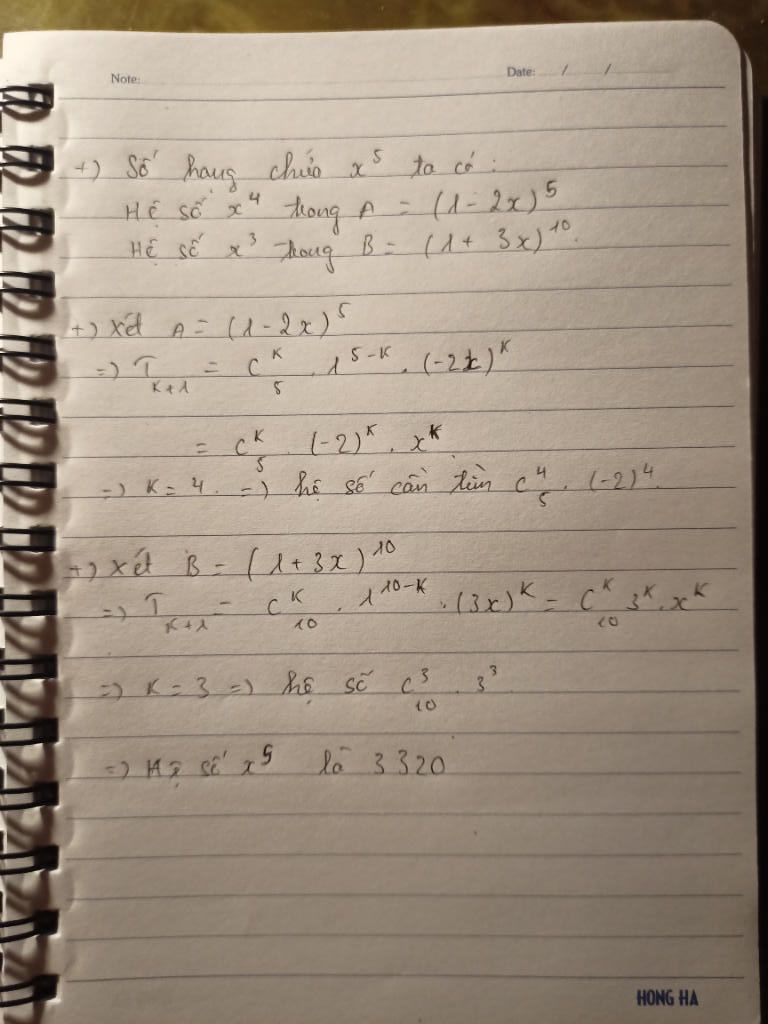 Note: Date: / /
+) Số hạng chứa x⁵ ta có:
Hệ số x⁴ trong A = (1 - 2x)⁵
Hệ số x³ trong B = (1 + 3x)¹⁰.
+) Xét A = (1 - 2x)⁵
=) T_{K+1} = C_5^K . 1^{5-K} . (-2x)^K
= C_5^K . (-2)^K . x^K
=) K = 4. =) hệ số cần tìm C_5^4 . (-2)^4.
+) Xét B = (1 + 3x)¹⁰
=) T_{K+1} = C_{10}^K . 1^{10-K} . (3x)^K = C_{10}^K 3^K . x^K
=) K = 3 =) hệ số C_{10}^3 . 3^3.
=) Hệ số x⁵ là 3320
HONG HA